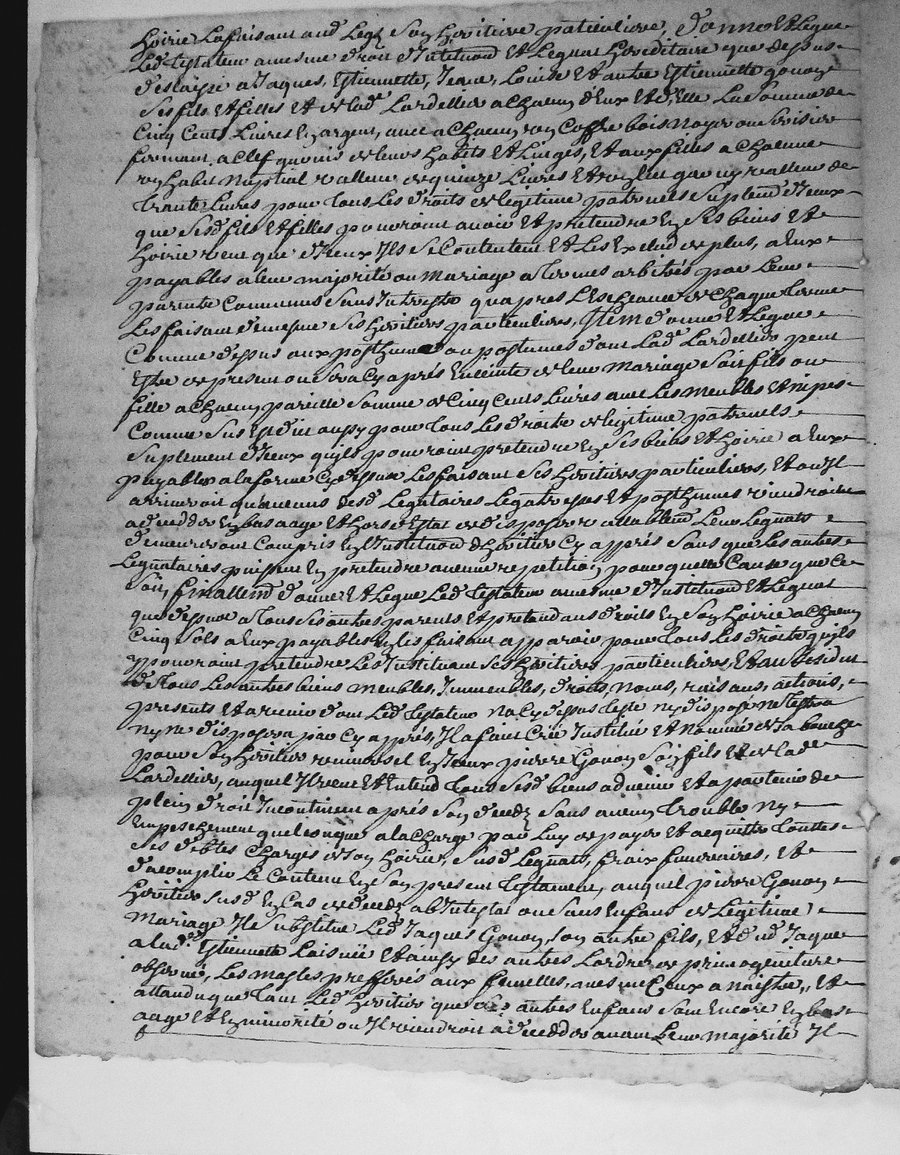 hoirie la faisant aud Legz son heritiere particuliere, donne et Legue
Led testateur a mesme droit d'Institution et Legnat hereditaire que dessus
delaisse a Jaques, Estiennette, Jeane, Louise et autre Estiennette gonon
ses fils et filles et de lad Lardellier a chacun d'Eux et d'Elle La somme de
Cinq Cents Livres En argent, avec a chacun un Coffre bois noyer ou serisier
fermant a Clef garnis de leurs habits et Linges, et aux filles a chacune
un habit nuptial valleur de quinze Livres et que valleur de
trante Livres pour tous Les droits de legitime paternels suplemd d'Iceux
que sesd fils et filles pouroient avoir et pretendre En ses biens et
hoirie veut que d'Iceux Ils se Contentent et Les Exclud de plus, a Eux
payables a leur majorité ou Mariage a termes arbitrés par Leur
parents Communs sans Intrestz qu'apres L'Escheance de chaque terme
Les faisant de mesme ses heritiers particulieres, Item donne et Legue
Comme dessus aux posthume ou postumes dont Lad Lardellier peut
Estre de present ou sera Cy aprés Enceinte de leur mariage soit fils ou
fille a chacun pareille somme de Cinq Cents Livres avec Les meubles et nipes
Comme sus Est dit aussy pour tous Les droits de legitime paternels
suplement d'Iceux qu'ils pouroint pretendre En ses biens et hoirie a Eux
payables a la forme Cy dessus Les faisant ses heritiers particuliers, et ou Il
arriveroit qu'aucuns desd Legataires Legatresses et posthumes viendroint
a decedder En bas aage et hors d'Estat de disposer vallablemt Leur Legnatz
demeureront Compris En L'Institution d'heritier Cy apprés sans que Les autres
Legnataires puissent En pretendre aucune repetition pour quelle Cause que Ce
soit, finallemd donne et Legue Led testateur a mesme d'Institution et Legnat
que dessus a tous ses autres parents et pretendans droits En son hoirie a chacun
Cinq sols a Eux payables En Les faisant apparoir pour tous Les droits qu'ils
y pouroint pretendre Les Instituant ses heritiers particuliers, et au residut
de tous Les autres biens meubles, Immeubles, droits, noms, raisons, actions,
presents et a venir dont Led testateur na Cy dessus testé ny disposé ne testera
ny ne disposera par Cy apprés, Il a fait Créé Institué et nommé de sa bouche
pour son heritier universel En Iceux pierre Gonon son fils et de lade
Lardellier, auquel Il veut et Entend tous sesd biens advenir et apartenir de
plein droit Incontinent aprés son decedz sans aucun trouble ny
Empeschement quelconque a la Charge par Luy de payer et acquitter toutes
ses debtes Charges de son hoirie, susd Legnatz, fraix funeraires, et
d'acomplir Le Contenu En son present testament, auquel pierre Gonon
heritier susd En Cas de decedz ab Intestat ou sans Enfans de Legitime
Mariage Il substitue Led Jaques Gonon son autre fils, et dud Jaque
a lad. Estiennette L'aisnée et ainsy des autres L'ordre de primogeniture
observé, Les masles prefferés aux femelles, avec mesme Ceux a naistre, et
attandu que tant Led heritier que ses autres Enfans sont Encore En bas
aage et En minorité ou Il viendroit a decedder avant Leur majorité Il